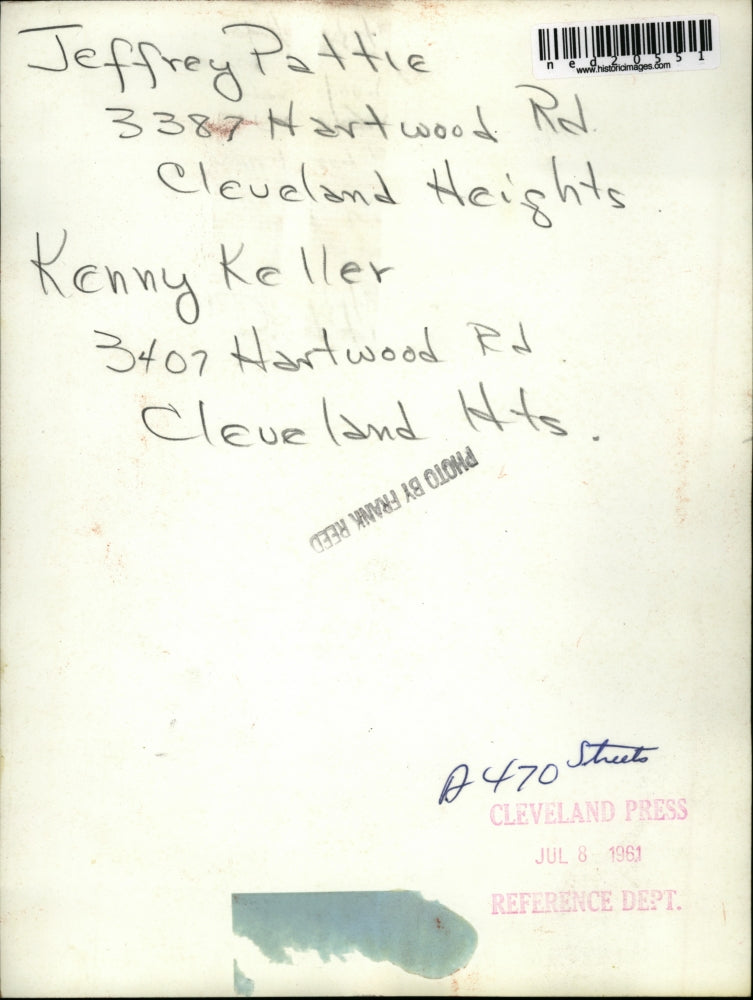 Jeffrey Pattie
3387 Hartwood Rd.
Cleveland Heights.
Kenny Keller
3407 Hartwood Rd.
Cleveland Hts.
ned20551
www.historicimages.com
PHOTO BY FRANK REED
A470 Streets
CLEVELAND PRESS
JUL 8 1961
REFERENCE DEPT.